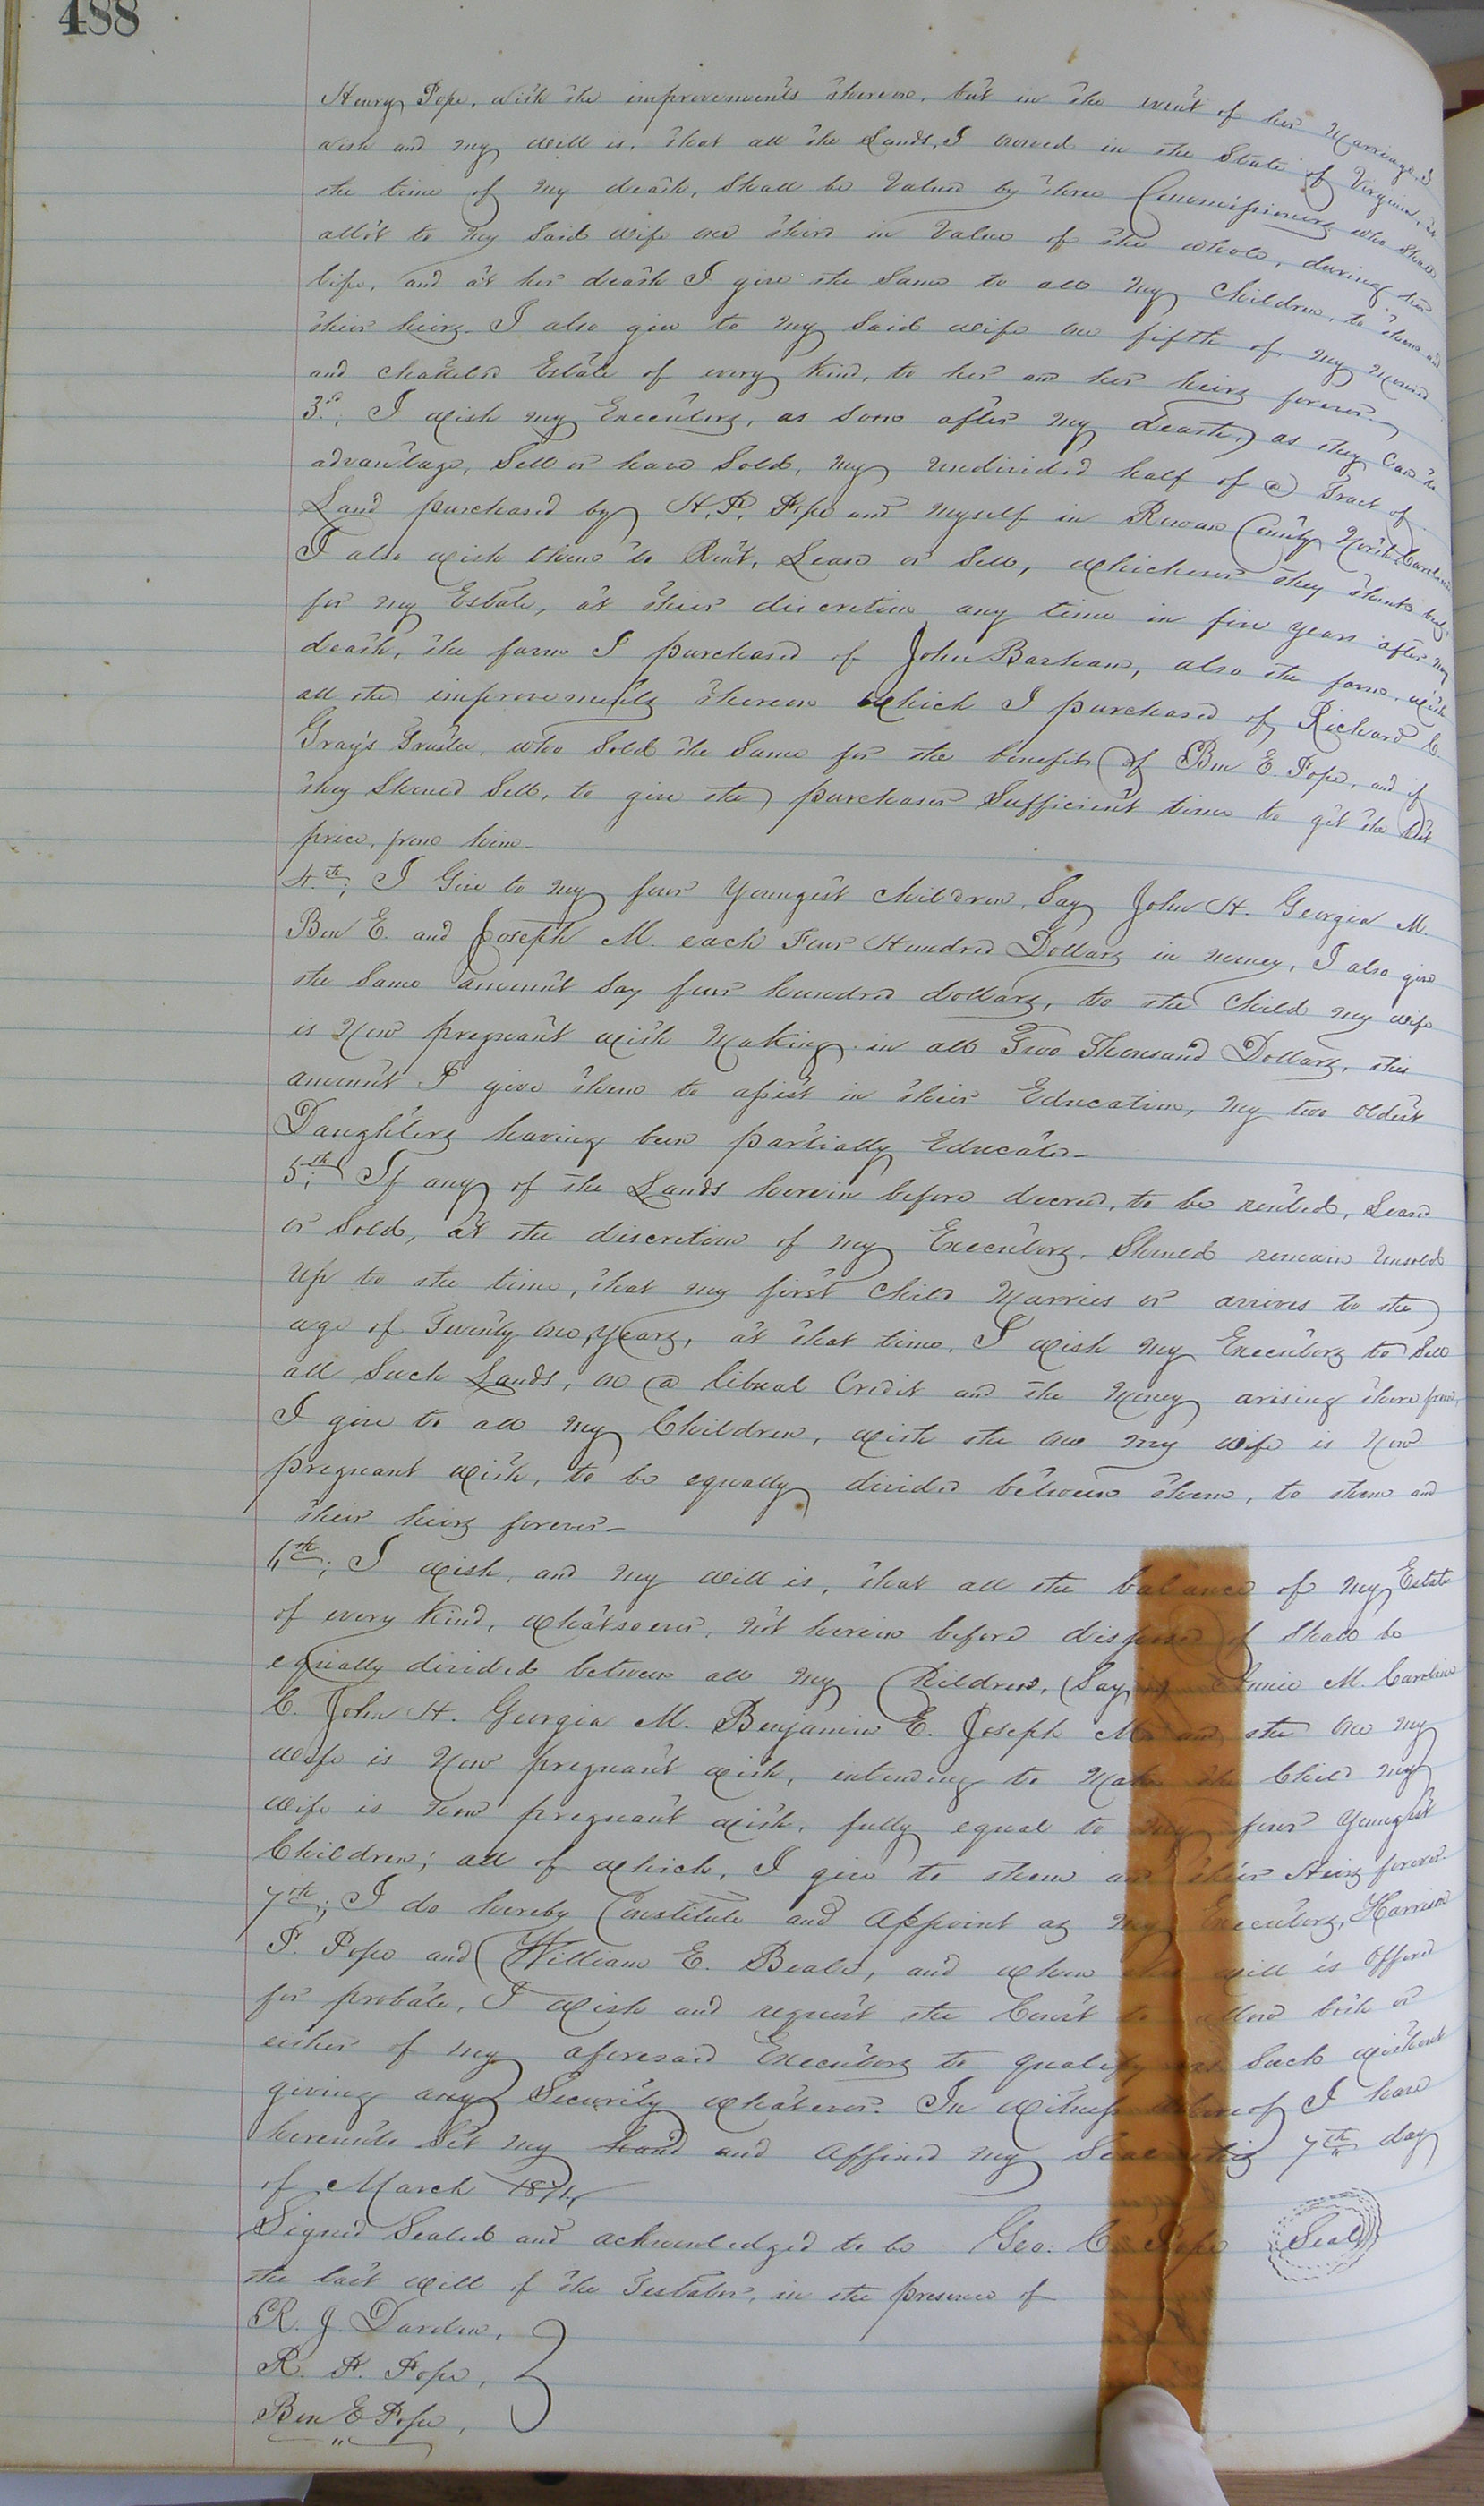 488
Henry Pope, with the improvements thereon, but in the event of her Marriage, I
wish and my will is, that all the Lands, I owned in the State of Virginia, at
the time of my death, shall be Valued by three Commissioners who shall
allot to my said wife one third in Value of the whole, during her
life, and at her death I give the same to all my children, to them and
their heirs. I also give to my said wife one fifth of my
and chatteled Estate of every Kind, to her and her heirs forever.
3rd; I wish my Executors, as soon as after my death, as they can to
advantage, Sell or have Sold, my undivided half of a Tract of
Land purchased by H. P. Pope and myself in Rowan County North Carolina
I also wish them to Rent, Lease or Sell, whichever they think best
for my Estate, at their discretion any time in five years after my
death, the farm I purchased of John Barham, also the farm, with
all the improvements thereon which I purchased of Richard C.
Gray's Trustee, who sold the same for the benefit of Ben E. Pope, and if
they should Sell, to give the purchaser Sufficient time to get the best
price, from him.
4th; I Give to my four Youngest children, Say John H. Georgia M.
Ben E. and Joseph M. each Four Hundred Dollars in money, I also give
the same amount say four hundred dollars, to the Child my wife
is Now pregnant with Making in all Two Thousand Dollars, this
amount I give them to assist in their Education, my two oldest
Daughters having been partially Educated
5th; If any of the Lands herein before decreed, to be rented, Leased
or Sold, at the discretion of my Executors, Should remain unsold
up to the time, that my first Child Marries or arrives to the
age of Twenty one, years, at that time, I wish my Executors to Sell
all Such Lands, on a liberal Credit and the Money arising therefrom,
I give to all my Children, with the one my wife is Now
pregnant with, to be equally divided between them, to them and
their heirs forever
6th; I wish, and my will is, that all the balance of my Estate
of every Kind, whatsoever, not herein before disposed of shall be
equally divided between all my Children, (Say) Annie M. Caroline
C. John H. Georgia M. Benjamin E. Joseph M. and the one my
wife is Now pregnant with, intending to Make the Child my
wife is now pregnant with, fully equal to my four Youngest
Children; all of which, I give to them and their Heirs forever.
7th; I do hereby Constitute and Appoint as my Executors, Harrison
P. Pope and William E. Beale, and when this will is Offered
for probate, I wish and request the Court to allow both or
either of my aforesaid Executors to qualify as Such without
giving any Security whatever. In Witness whereof I have
hereunto Set my hand and Affixed my Seal this 7th day
of March 1874
Signed Sealed and acknowledged to be Geo. C. Pope Seal
the last will of the Testator, in the presence of
R. J. Darden,
R. F. Pope,
Ben E Pope,